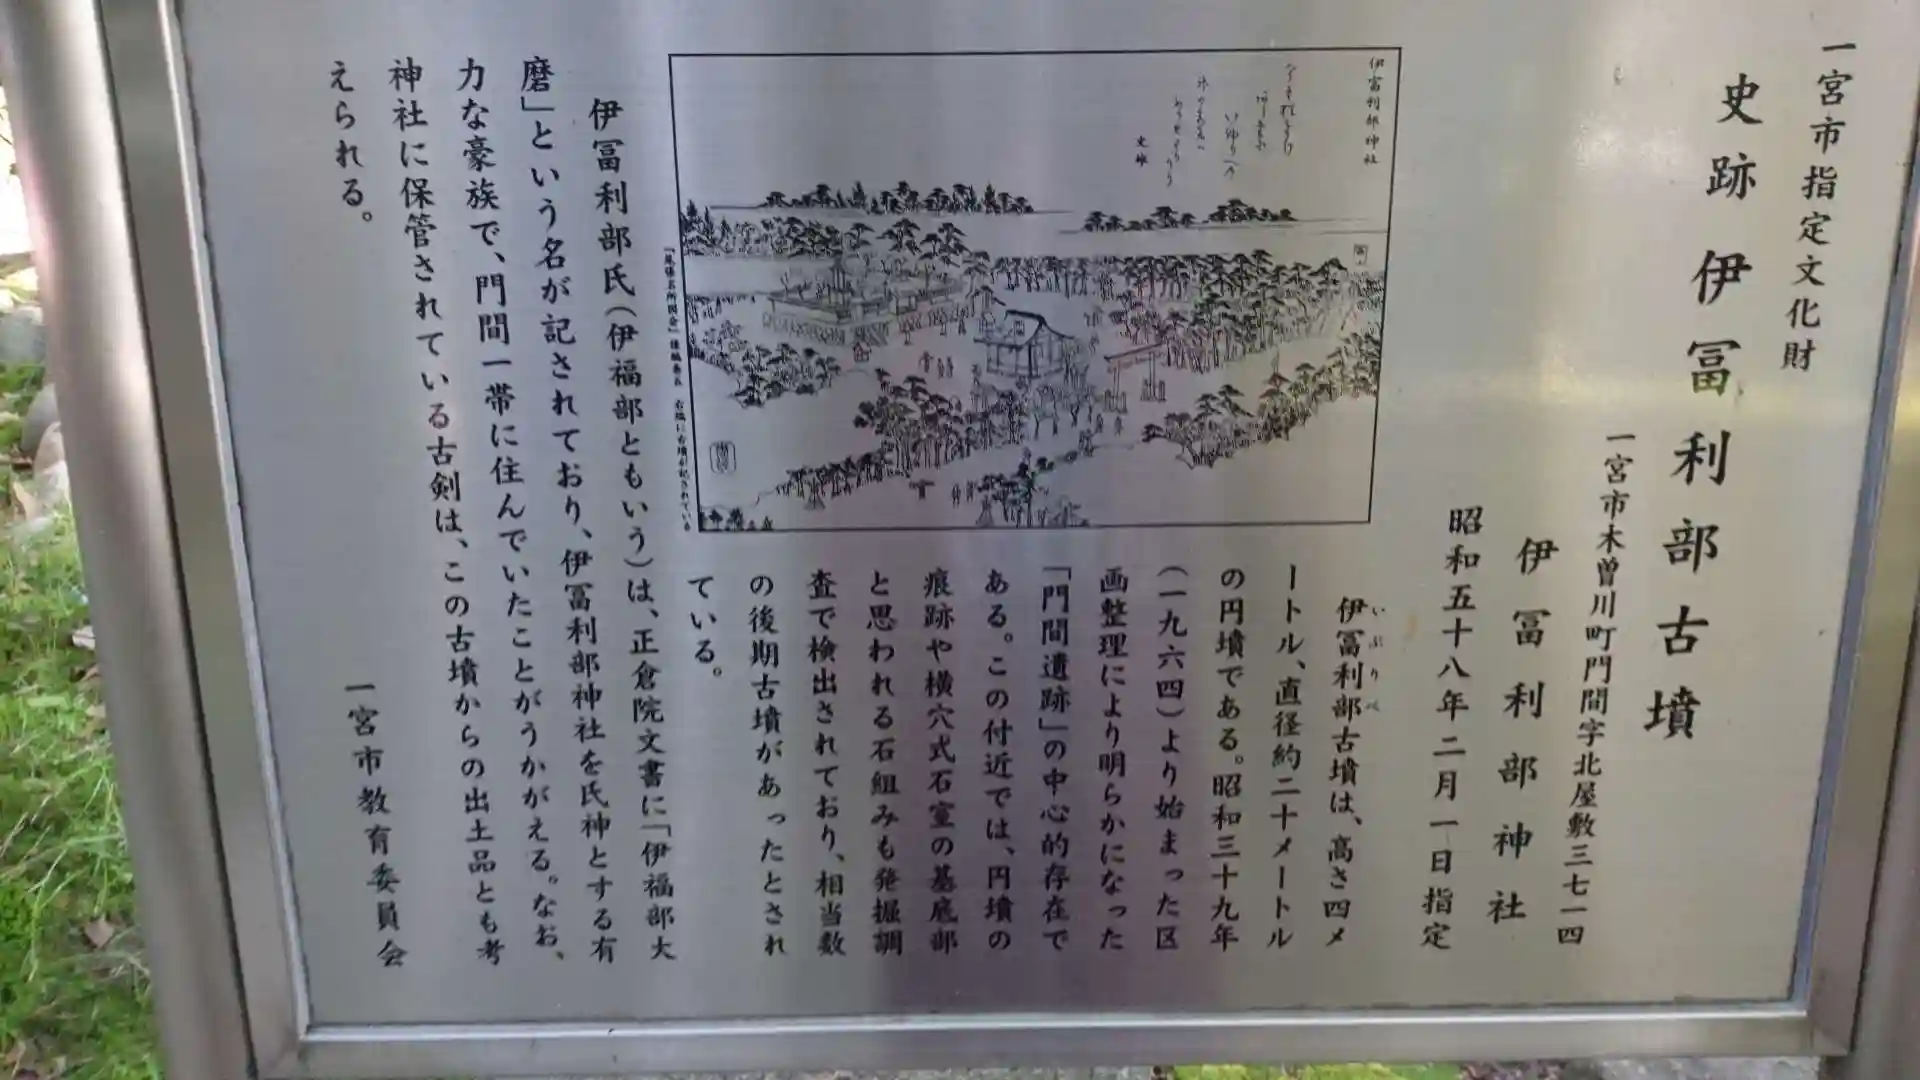 一宮市指定文化財
史跡 伊冨利部古墳
一宮市木曽川町門間字北屋敷三七一四
伊冨利部神社
昭和五十八年二月一日指定
いぶりべ
伊冨利部古墳は、高さ四メ
ートル、直径約二十メートル
の円墳である。昭和三十九年
(一九六四)より始まった区
画整理により明らかになった
「門間遺跡」の中心的存在で
ある。この付近では、円墳の
痕跡や横穴式石室の基底部
と思われる石組みも発掘調
査で検出されており、相当数
の後期古墳があったとされ
ている。
伊冨利部神社
「尾張名所図会」後編巻 右端に古墳が記されている
伊冨利部氏(伊福部ともいう)は、正倉院文書に「伊福部大
磨」という名が記されており、伊冨利部神社を氏神とする有
力な豪族で、門間一帯に住んでいたことがうかがえる。なお、
神社に保管されている古剣は、この古墳からの出土品とも考
えられる。
一宮市教育委員会